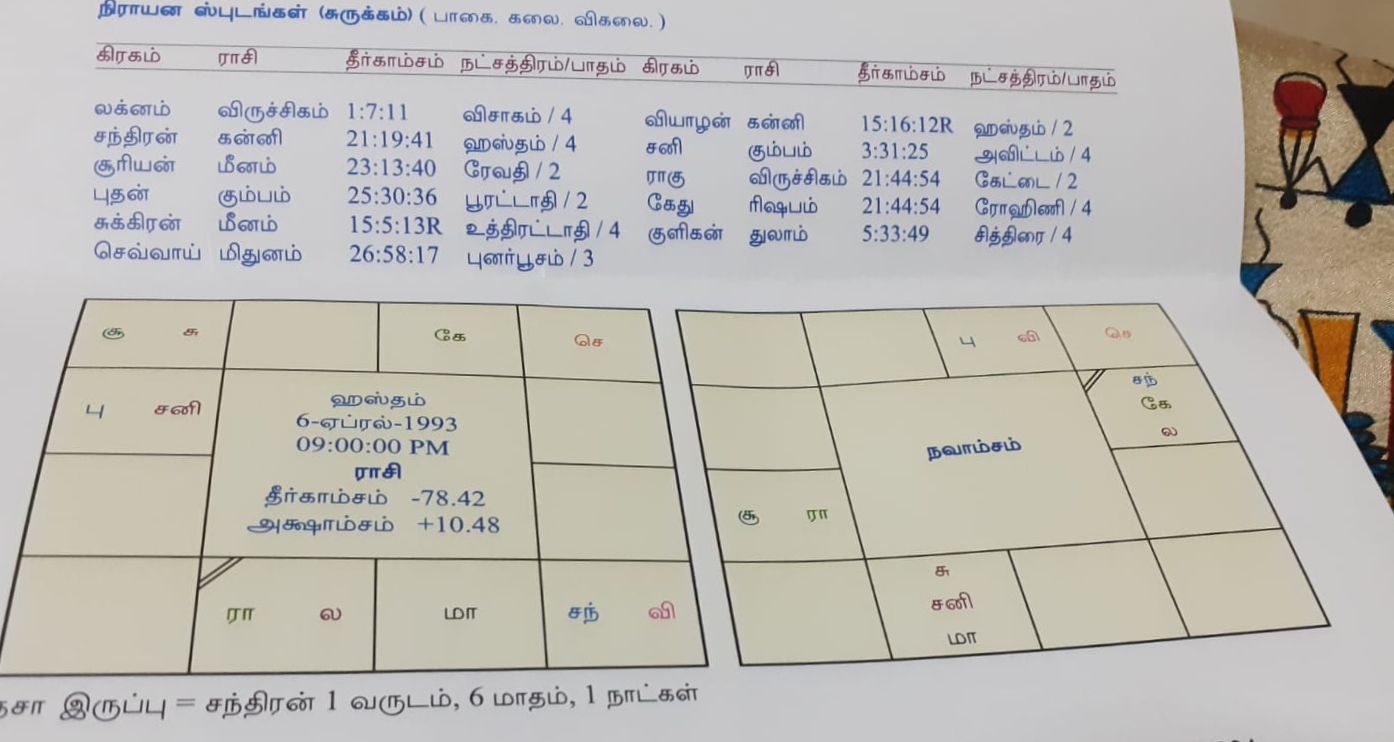 நிராயன ஸ்புடங்கள் (சுருக்கம்) ( பாகை. கலை. விகலை. )
கிரகம் ராசி தீர்காம்சம் நட்சத்திரம்/பாதம் கிரகம் ராசி தீர்காம்சம் நட்சத்திரம்/பாதம்
லக்னம் விருச்சிகம் 1:7:11 விசாகம் / 4 வியாழன் கன்னி 15:16:12R ஹஸ்தம் / 2
சந்திரன் கன்னி 21:19:41 ஹஸ்தம் / 4 சனி கும்பம் 3:31:25 அவிட்டம் / 4
சூரியன் மீனம் 23:13:40 ரேவதி / 2 ராகு விருச்சிகம் 21:44:54 கேட்டை / 2
புதன் கும்பம் 25:30:36 பூரட்டாதி / 2 கேது ரிஷபம் 21:44:54 ரோஹிணி / 4
சுக்கிரன் மீனம் 15:5:13R உத்திரட்டாதி / 4 குளிகன் துலாம் 5:33:49 சித்திரை / 4
செவ்வாய் மிதுனம் 26:58:17 புனர்பூசம் / 3
சூ சு கே செ
பு சனி
ஹஸ்தம்
6-ஏப்ரல்-1993
09:00:00 PM
ராசி
தீர்காம்சம் -78.42
அக்ஷாம்சம் +10.48
ரா ல மா சந் வி
பு வி செ
சந்
கே
ல
நவாம்சம்
சூ ரா
சு
சனி
மா
தசா இருப்பு = சந்திரன் 1 வருடம், 6 மாதம், 1 நாட்கள்